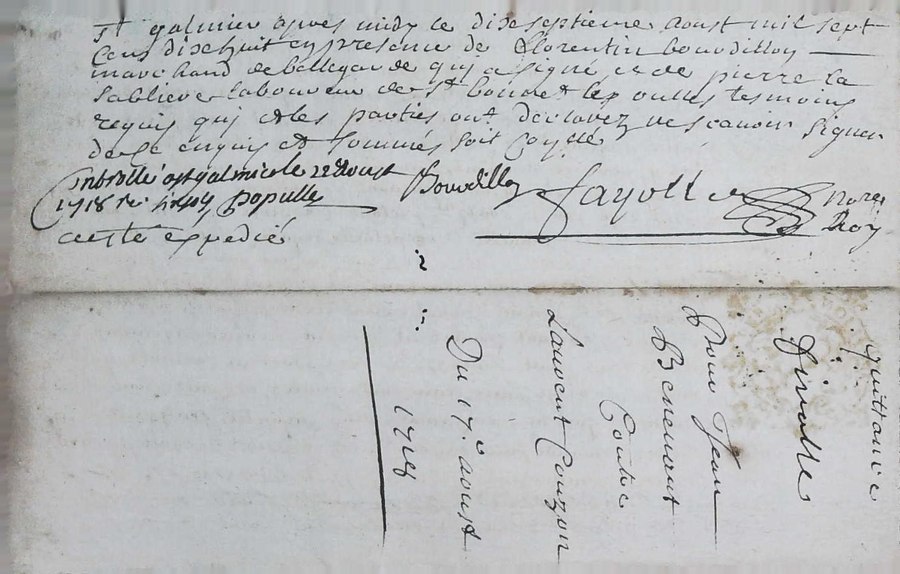 St galmier apres midy le dixseptieme aoust mil sept
Cens dixhuit en presence de Florentin bourdillon
marchand de bellegarde qui a signé et de pierre la
sablieve laboureur de St bonnet les oulles tesmoins
requis qui et les parties ont declarez ne scavoir signer
de ce enquis et sommés soit fayolle
Controllé a st galmier le 22e aoust
1718 populle
acette expedié
Bourdillon fayolle nore
Roy
quittance
finalle
Pour Jean
Benevant
Contre
Laurent Couzon
Du 17.e aoust
1718